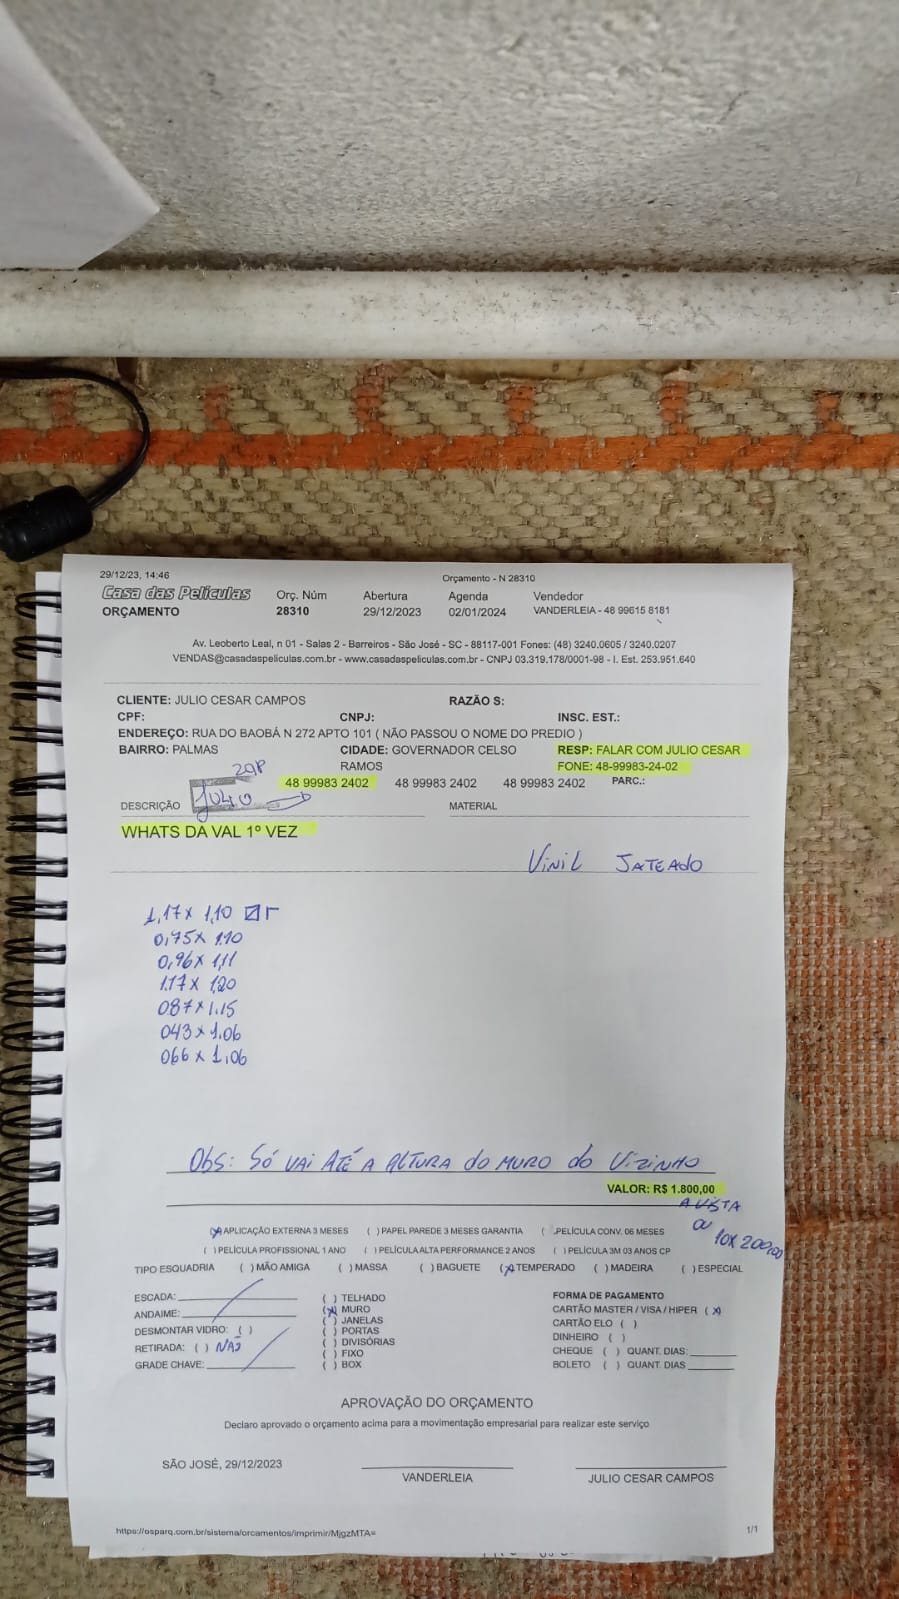 29/12/23, 14:46
Orçamento - N 28310
Casa das Películas Orç. Núm Abertura Agenda Vendedor
ORÇAMENTO 28310 29/12/2023 02/01/2024 VANDERLEIA - 48 99615 8181
Av. Leoberto Leal, n 01 - Salas 2 - Barreiros - São José - SC - 88117-001 Fones: (48) 3240.0605 / 3240.0207
VENDAS@casadaspeliculas.com.br - www.casadaspeliculas.com.br - CNPJ 03.319.178/0001-98 - I. Est. 253.951.640
CLIENTE: JULIO CESAR CAMPOS RAZÃO S:
CPF: CNPJ: INSC. EST.:
ENDEREÇO: RUA DO BAOBÁ N 272 APTO 101 ( NÃO PASSOU O NOME DO PREDIO )
BAIRRO: PALMAS CIDADE: GOVERNADOR CELSO RESP: FALAR COM JULIO CESAR
RAMOS FONE: 48-99983-24-02
48 99983 2402 48 99983 2402 48 99983 2402 PARC.:
JULIO
DESCRIÇÃO MATERIAL
WHATS DA VAL 1º VEZ
VINIL JATEADO
1,17 x 1,10
0,75 x 1.10
0,96 x 1,11
1.17 x 1,20
087 x 1.15
043 x 1.06
066 x 1,06
Obs: SÓ VAI ATÉ A ALTURA do MURO do VIZINHO
VALOR: R$ 1.800,00
A VISTA
OU 10X 200,00
(X) APLICAÇÃO EXTERNA 3 MESES ( ) PAPEL PAREDE 3 MESES GARANTIA ( ) PELÍCULA CONV. 06 MESES
( ) PELÍCULA PROFISSIONAL 1 ANO ( ) PELÍCULA ALTA PERFORMANCE 2 ANOS ( ) PELÍCULA 3M 03 ANOS CP
TIPO ESQUADRIA ( ) MÃO AMIGA ( ) MASSA ( ) BAGUETE (X) TEMPERADO ( ) MADEIRA ( ) ESPECIAL
ESCADA: ( ) TELHADO FORMA DE PAGAMENTO
ANDAIME: (X) MURO CARTÃO MASTER / VISA / HIPER (X)
( ) JANELAS CARTÃO ELO ( )
DESMONTAR VIDRO: ( ) ( ) PORTAS DINHEIRO ( )
RETIRADA: ( ) NÃO ( ) DIVISÓRIAS CHEQUE ( ) QUANT. DIAS:
( ) FIXO
GRADE CHAVE: ( ) BOX BOLETO ( ) QUANT. DIAS
APROVAÇÃO DO ORÇAMENTO
Declaro aprovado o orçamento acima para a movimentação empresarial para realizar este serviço
SÃO JOSÉ, 29/12/2023
VANDERLEIA JULIO CESAR CAMPOS
https://osparq.com.br/sistema/orcamentos/imprimir/MjgzMTA=
1/1